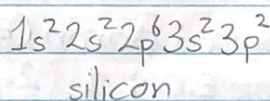 1s²2s²2p⁶3s²3p²
silicon